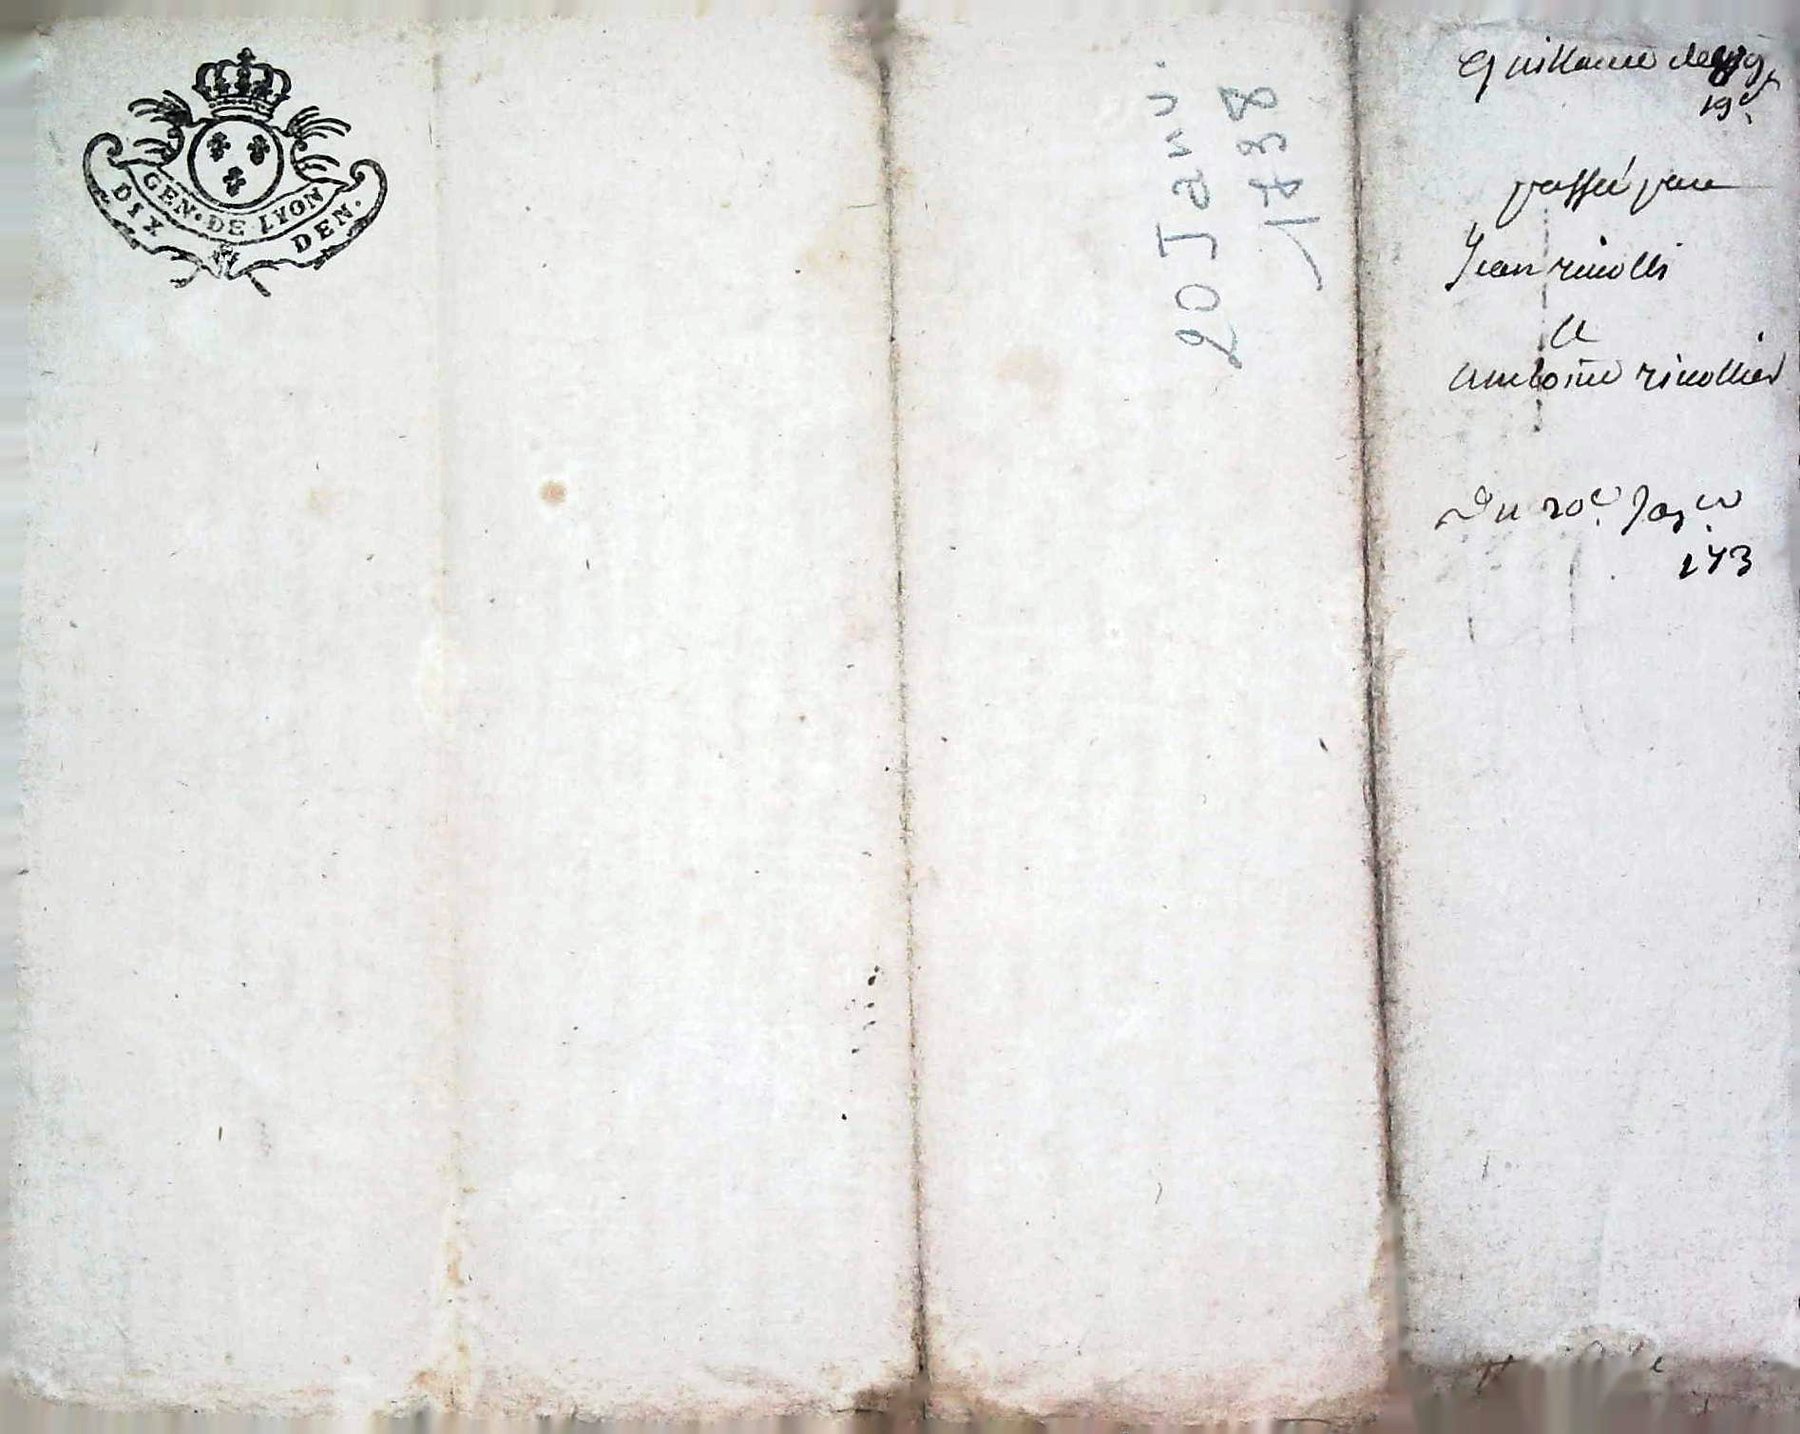 GEN. DE LYON
DIX DEN.
20 Janv.
1738
Quittance de
19ᵉ
passée par
Jean
a
Antoine ricollier
Du 20ᵉ Janᵉʳ
173